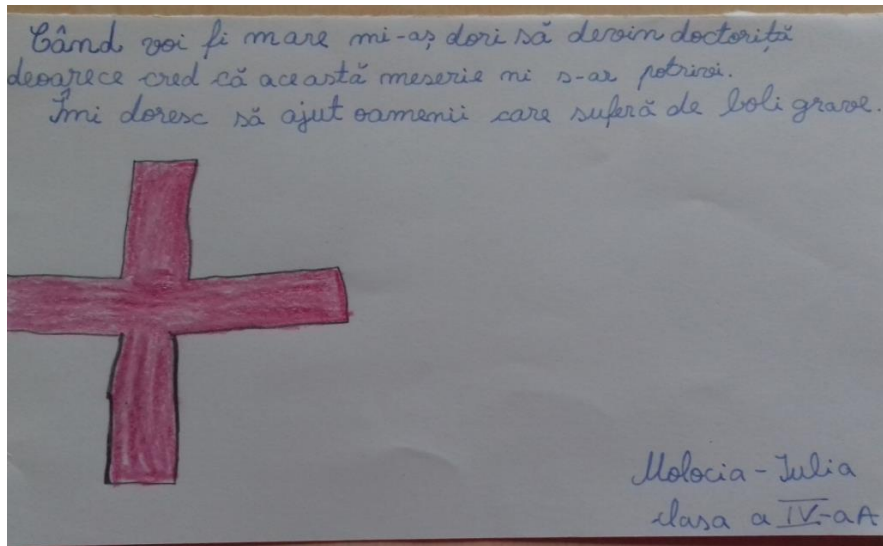 Când voi fi mare mi-aș dori să devin doctoriță
deoarece cred că această meserie mi s-ar potrivi.
Îmi doresc să ajut oamenii care suferă de boli grave.
Molocia-Iulia
clasa a IV-a A